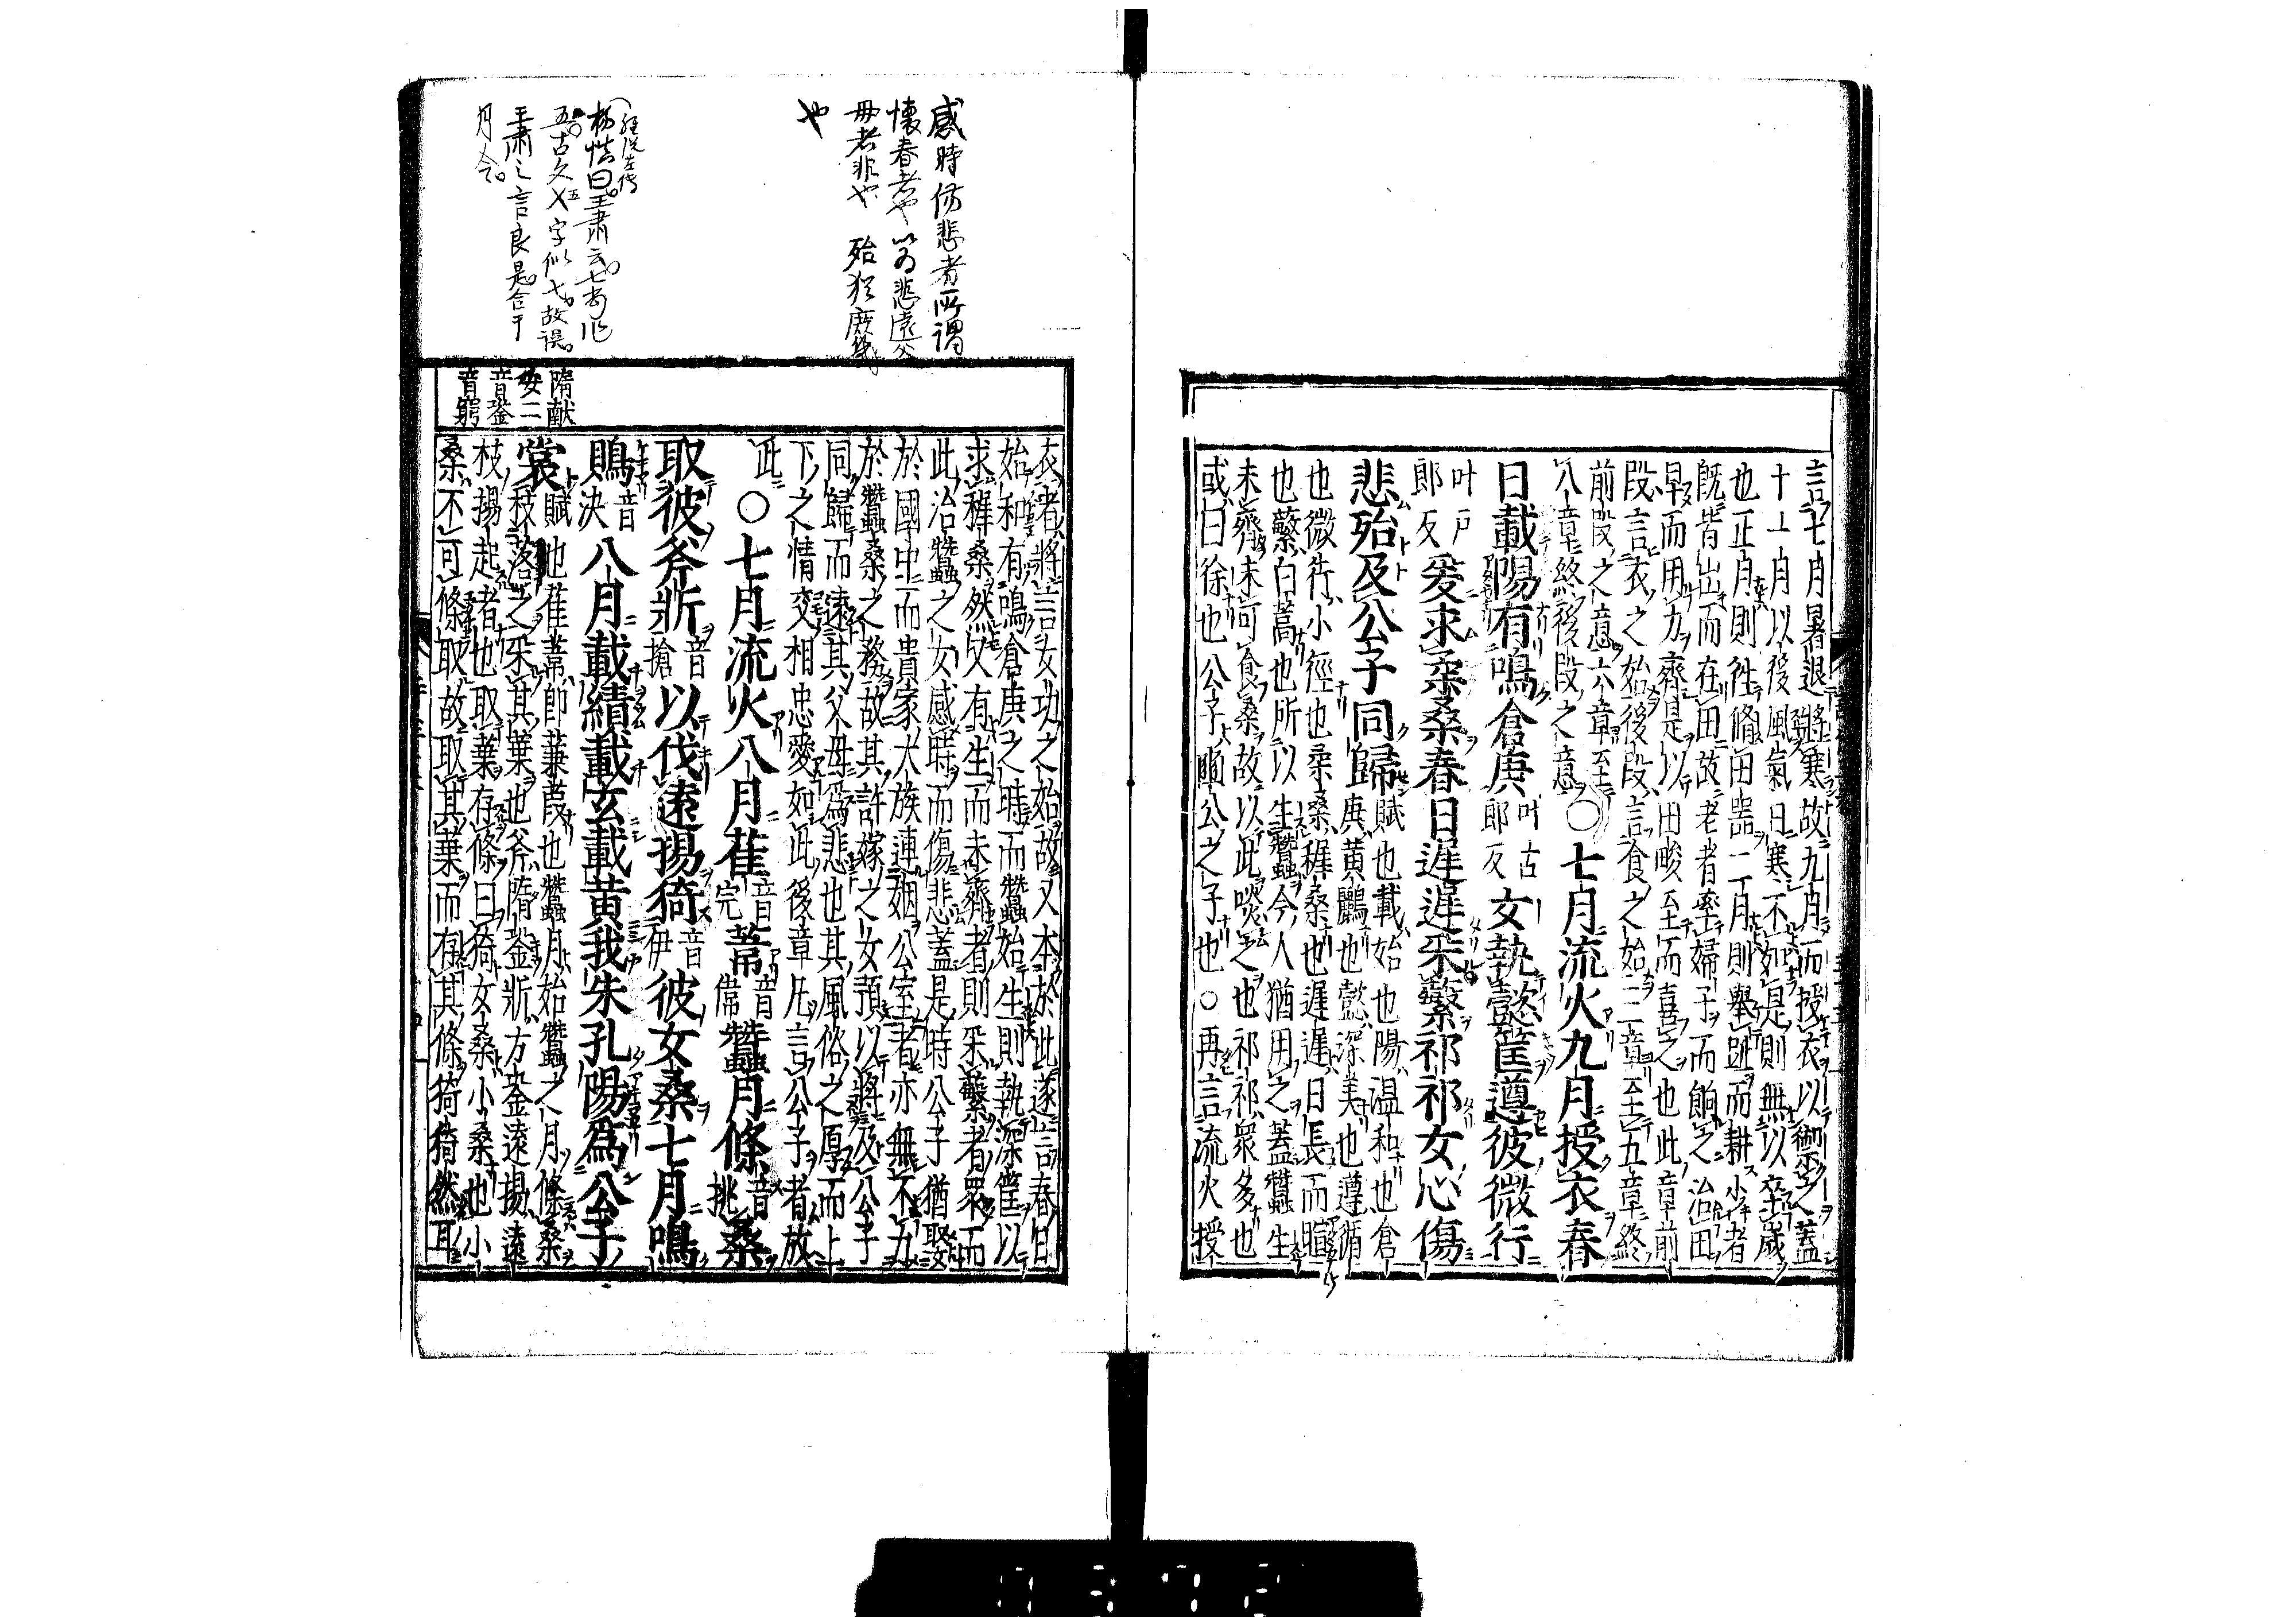 言七月暑退將寒故九月而授衣以禦之蓋
十一月以後風氣日寒不如是則無以卒歲
也正月則徃脩田噐二月則舉趾而耕少者
旣皆出而在田故老者率婦子而餉之治田
早而用力齊是以田畯至而喜之也此章前
段言衣之始後段言食之始二章至五章終
前段之意六章至
八章終後段之意〇七月流火九月授衣春
日載陽有鳴倉庚叶古郎反女執懿筐遵彼微行
叶戸郎反爰求柔桑春日遲遲采蘩祁祁女心傷
悲殆及公子同歸賦也載始也陽温和也倉
庚黄鸝也懿深美也遵循
也微行小徑也柔桑穉桑也遲遲日長而暄
也蘩白蒿也所以生蠶今人猶用之蓋蠶生
未齊未可食桑故以此啖之也祁祁衆多也
或曰徐也公子豳公之子也〇再言流火授
衣者將言女功之始故又本於此遂言春日
始和有鳴倉庚之時而蠶始生則執深筐以
求穉桑然又有生而未齊者則采蘩者衆而
此治蠶之女感時而傷悲蓋是時公子猶娶
於國中而貴家大族連姻公室者亦無不力
於蠶桑之務故其許嫁之女預以將及公子
同歸而遠其父母爲悲也其風俗之厚而上
下之情交相忠愛如此後章凡言公子者放
此〇七月流火八月萑音完葦音偉蠶月條音挑桑
取彼斧斨音搶以伐遠揚猗音伊彼女桑七月鳴
鵙音決八月載績載玄載黄我朱孔陽爲公子
裳賦也萑葦卽蒹葭也蠶月始蠶之月條桑
枝落之采其葉也斧隋銎斨方銎遠揚遠
枝揚起者也取葉存條曰猗女桑小桑也小
桑不可條取故取其葉而存其條猗猗然耳
隋献
妥二
音銎
音䠻
感時傷悲者所謂
懷春者也以爲悲遠父
母者非也 殆猶庶幾
也
楊慎曰王肅云七當作
五古文㐅字似七故誤
王肅之言良是合于
月令